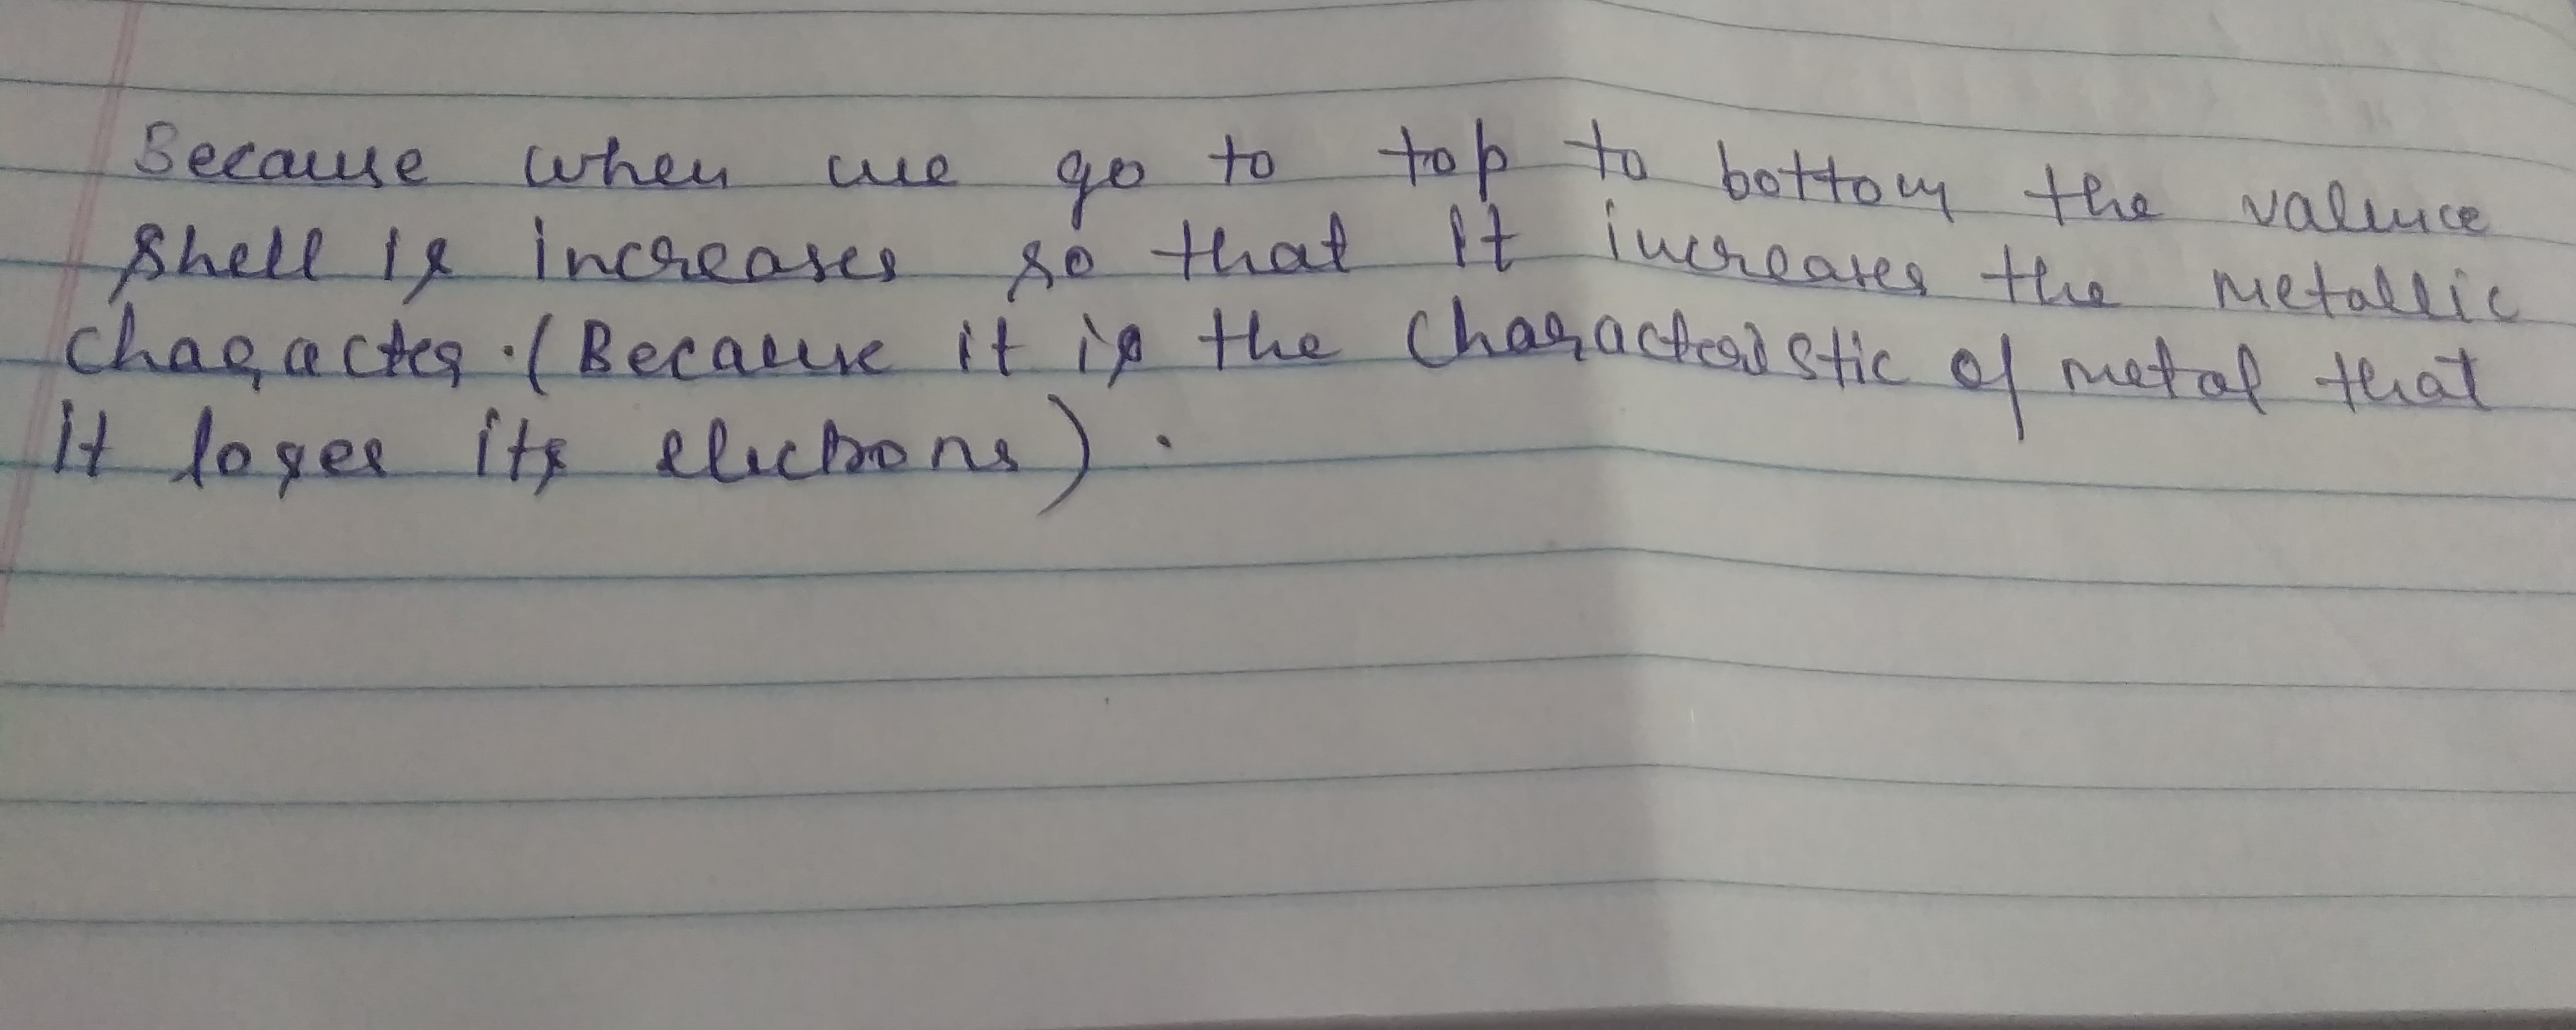 Because when we go to top to bottom the valence
shell is increases so that it increases the metallic
character. (Because it is the characteristic of metal that
it loses its electrons).